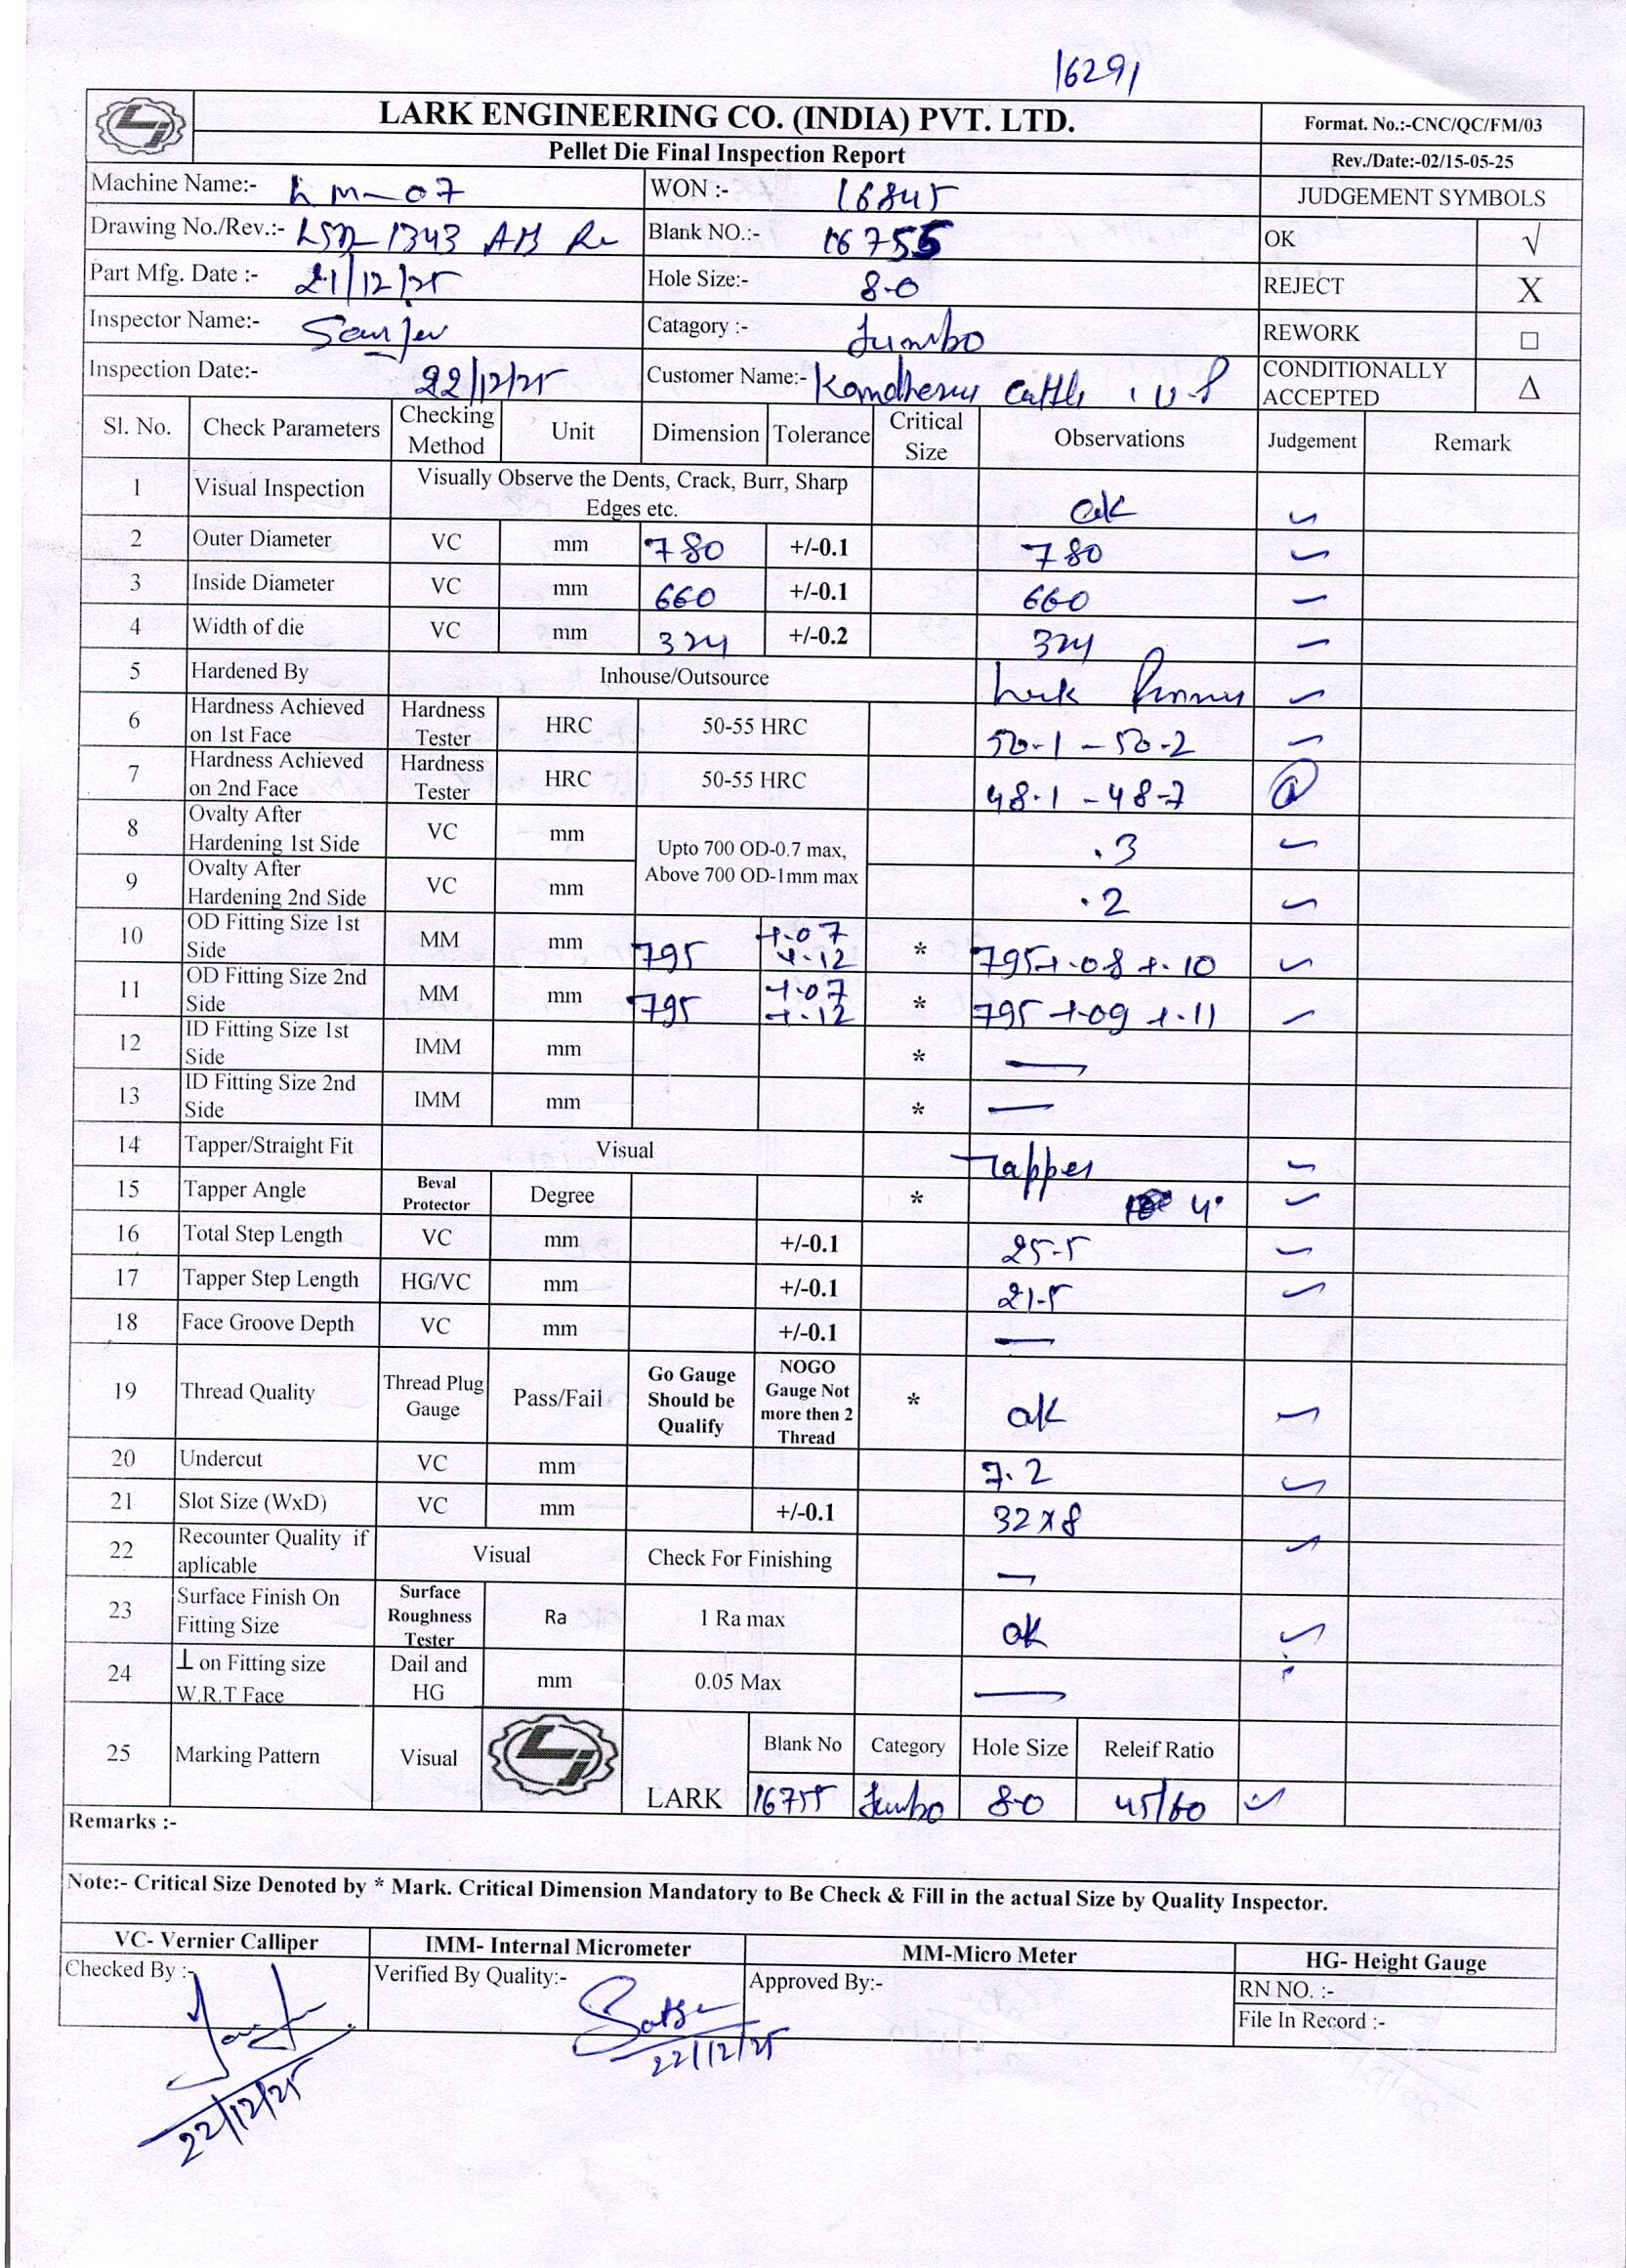 16291
LARK ENGINEERING CO. (INDIA) PVT. LTD.
Format. No.:-CNC/QC/FM/03
Pellet Die Final Inspection Report
Rev./Date:-02/15-05-25
Machine Name:- LM-07 WON :- 16845 JUDGEMENT SYMBOLS
Drawing No./Rev.:- 1343 AB Blank NO.:- 16755 OK √
Part Mfg. Date :- 21/12/25 Hole Size:- 8.0 REJECT X
Inspector Name:- Catagory :- Jumbo REWORK □
Inspection Date:- 22/12/25 Customer Name:- Cattle CONDITIONALLY ACCEPTED Δ
Sl. No. Check Parameters Checking Method Unit Dimension Tolerance Critical Size Observations Judgement Remark
1 Visual Inspection Visually Observe the Dents, Crack, Burr, Sharp Edges etc. ok ✓
2 Outer Diameter VC mm 780 +/-0.1 780 ✓
3 Inside Diameter VC mm 660 +/-0.1 660 ✓
4 Width of die VC mm 324 +/-0.2 324 ✓
5 Hardened By Inhouse/Outsource ✓
6 Hardness Achieved on 1st Face Hardness Tester HRC 50-55 HRC 50.1 - 50.2 ✓
7 Hardness Achieved on 2nd Face Hardness Tester HRC 50-55 HRC 48.1 - 48.7
8 Ovalty After Hardening 1st Side VC mm Upto 700 OD-0.7 max, Above 700 OD-1mm max .3 ✓
9 Ovalty After Hardening 2nd Side VC mm .2 ✓
10 OD Fitting Size 1st Side MM mm 795 +.07 +.12 * 795 +.08 +.10 ✓
11 OD Fitting Size 2nd Side MM mm 795 +.07 +.12 * 795 +.09 +.11 ✓
12 ID Fitting Size 1st Side IMM mm * —
13 ID Fitting Size 2nd Side IMM mm * —
14 Tapper/Straight Fit Visual Tapper ✓
15 Tapper Angle Beval Protector Degree * 4° ✓
16 Total Step Length VC mm +/-0.1 25.5 ✓
17 Tapper Step Length HG/VC mm +/-0.1 21.5 ✓
18 Face Groove Depth VC mm +/-0.1 —
19 Thread Quality Thread Plug Gauge Pass/Fail Go Gauge Should be Qualify NOGO Gauge Not more then 2 Thread * ok ✓
20 Undercut VC mm 7.2 ✓
21 Slot Size (WxD) VC mm +/-0.1 32x8 ✓
22 Recounter Quality if aplicable Visual Check For Finishing —
23 Surface Finish On Fitting Size Surface Roughness Tester Ra 1 Ra max ok ✓
24 ⊥ on Fitting size W.R.T Face Dail and HG mm 0.05 Max —
25 Marking Pattern Visual LARK Blank No Category Hole Size Releif Ratio
16755 Jumbo 8.0 45/60 ✓
Remarks :-
Note:- Critical Size Denoted by * Mark. Critical Dimension Mandatory to Be Check & Fill in the actual Size by Quality Inspector.
VC- Vernier Calliper IMM- Internal Micrometer MM-Micro Meter HG- Height Gauge
Checked By :- Verified By Quality:- Approved By:- RN NO. :-
File In Record :-
22/12/25
22/12/25